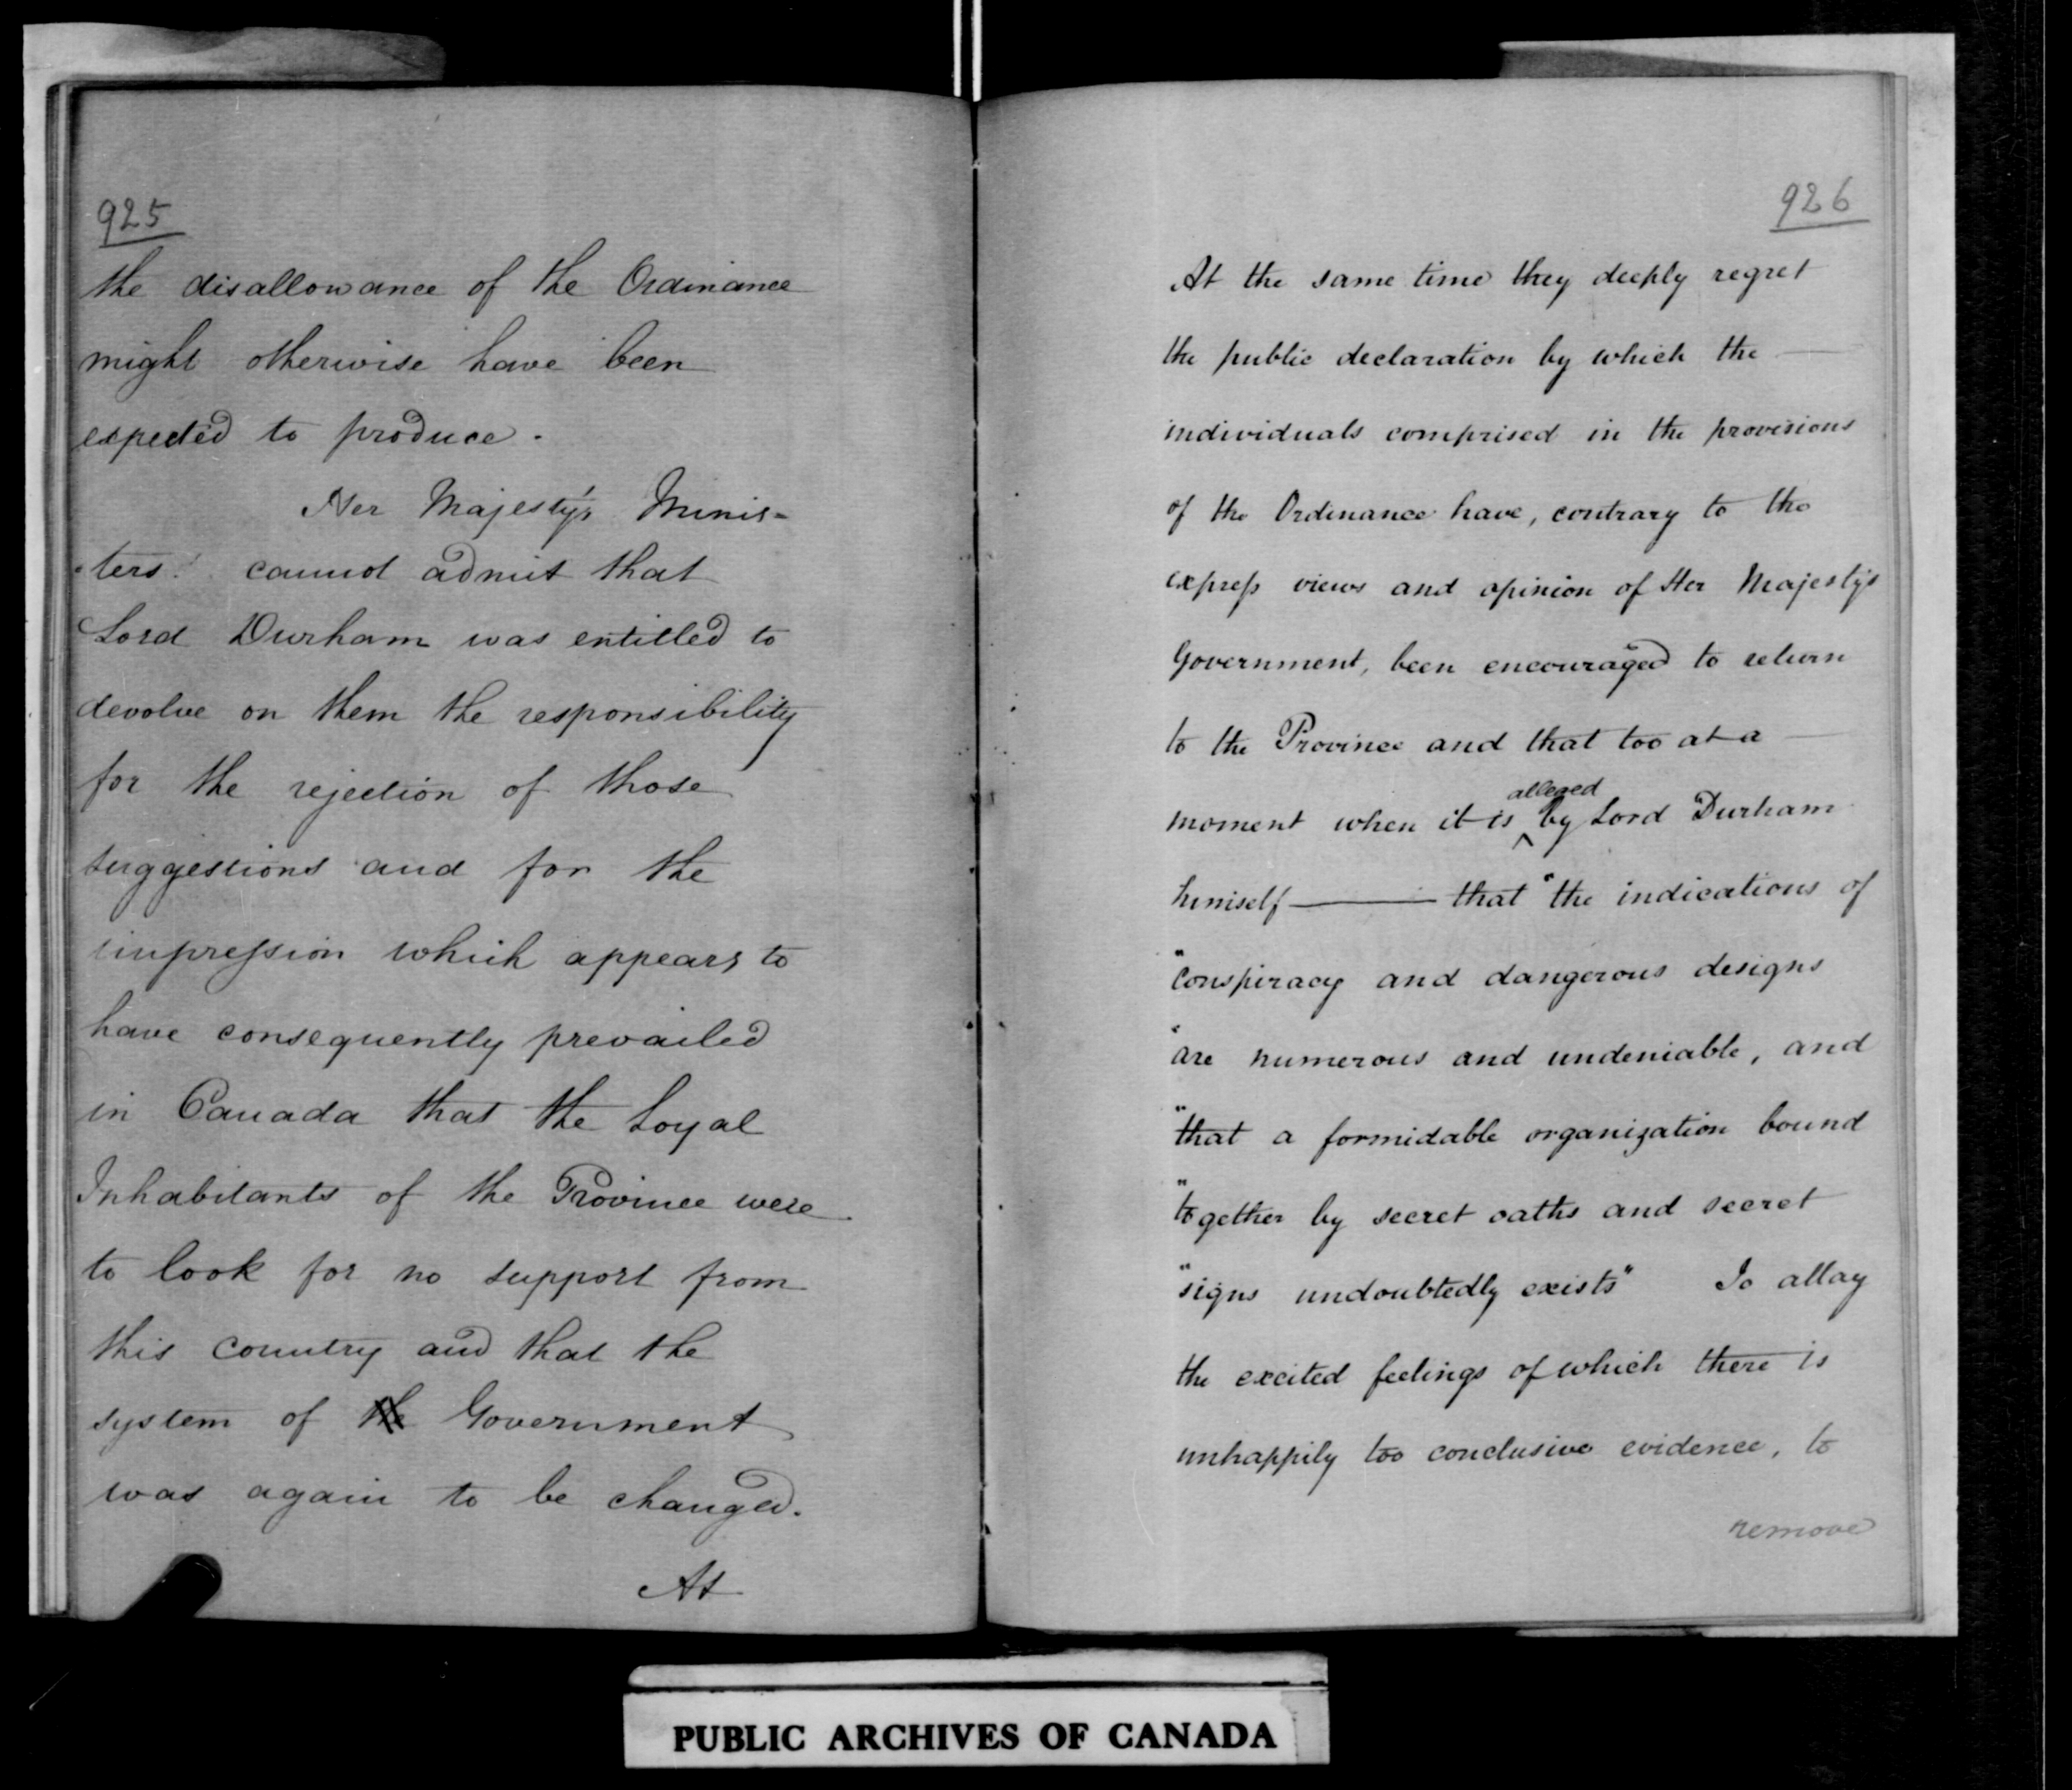 925
the disallowance of the Ordinance
might otherwise have been
expected to produce.
Her Majesty's Minis=
=ters cannot admit that
Lord Durham was entitled to
devolve on them the responsibility
for the rejection of those
suggestions and for the
impreſsion which appears to
have consequently prevailed
in Canada that the Loyal
Inhabitants of the Province were
to look for no support from
this country and that the
system of the Government
was again to be changed.
At
926
At the same time they deeply regret
the public declaration by which the —
individuals comprised in the provisions
of the Ordinance have, contrary to the
expreſs views and opinion of Her Majesty's
Government, been encouraged to return
to the Province and that too at a —
alleged
moment when it is ^ by Lord Durham
himself ——— that "the indications of
"conspiracy and dangerous designs
"are numerous and undeniable, and
"that a formidable organization bound
"together by secret oaths and secret
"signs undoubtedly exists" To allay
the excited feelings of which there is
unhappily too conclusive evidence, to
remove
PUBLIC ARCHIVES OF CANADA